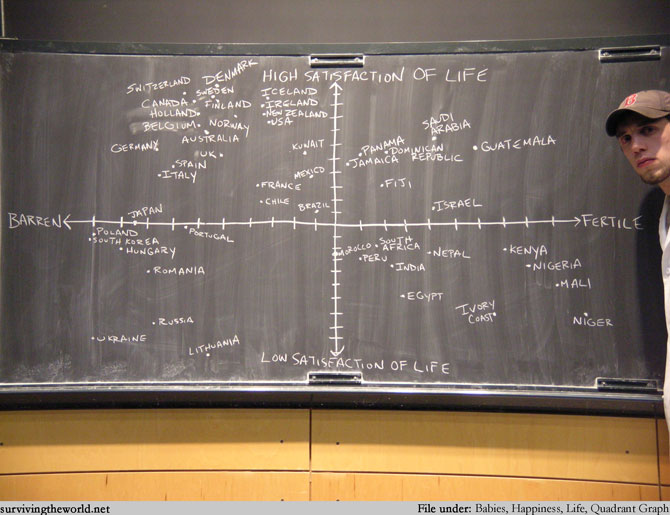 HIGH SATISFACTION OF LIFE
SWITZERLAND
DENMARK
SWEDEN
CANADA
FINLAND
HOLLAND
BELGIUM
NORWAY
AUSTRALIA
GERMANY
UK
SPAIN
ITALY
ICELAND
IRELAND
NEW ZEALAND
USA
KUWAIT
MEXICO
FRANCE
CHILE
BRAZIL
JAPAN
SAUDI
ARABIA
PANAMA
DOMINICAN
REPUBLIC
JAMAICA
GUATEMALA
FIJI
ISRAEL
BARREN
FERTILE
POLAND
SOUTH KOREA
HUNGARY
PORTUGAL
ROMANIA
RUSSIA
UKRAINE
LITHUANIA
MOROCCO
SOUTH
AFRICA
PERU
INDIA
NEPAL
KENYA
NIGERIA
MALI
EGYPT
IVORY
COAST
NIGER
LOW SATISFACTION OF LIFE
survivingtheworld.net
File under: Babies, Happiness, Life, Quadrant Graph